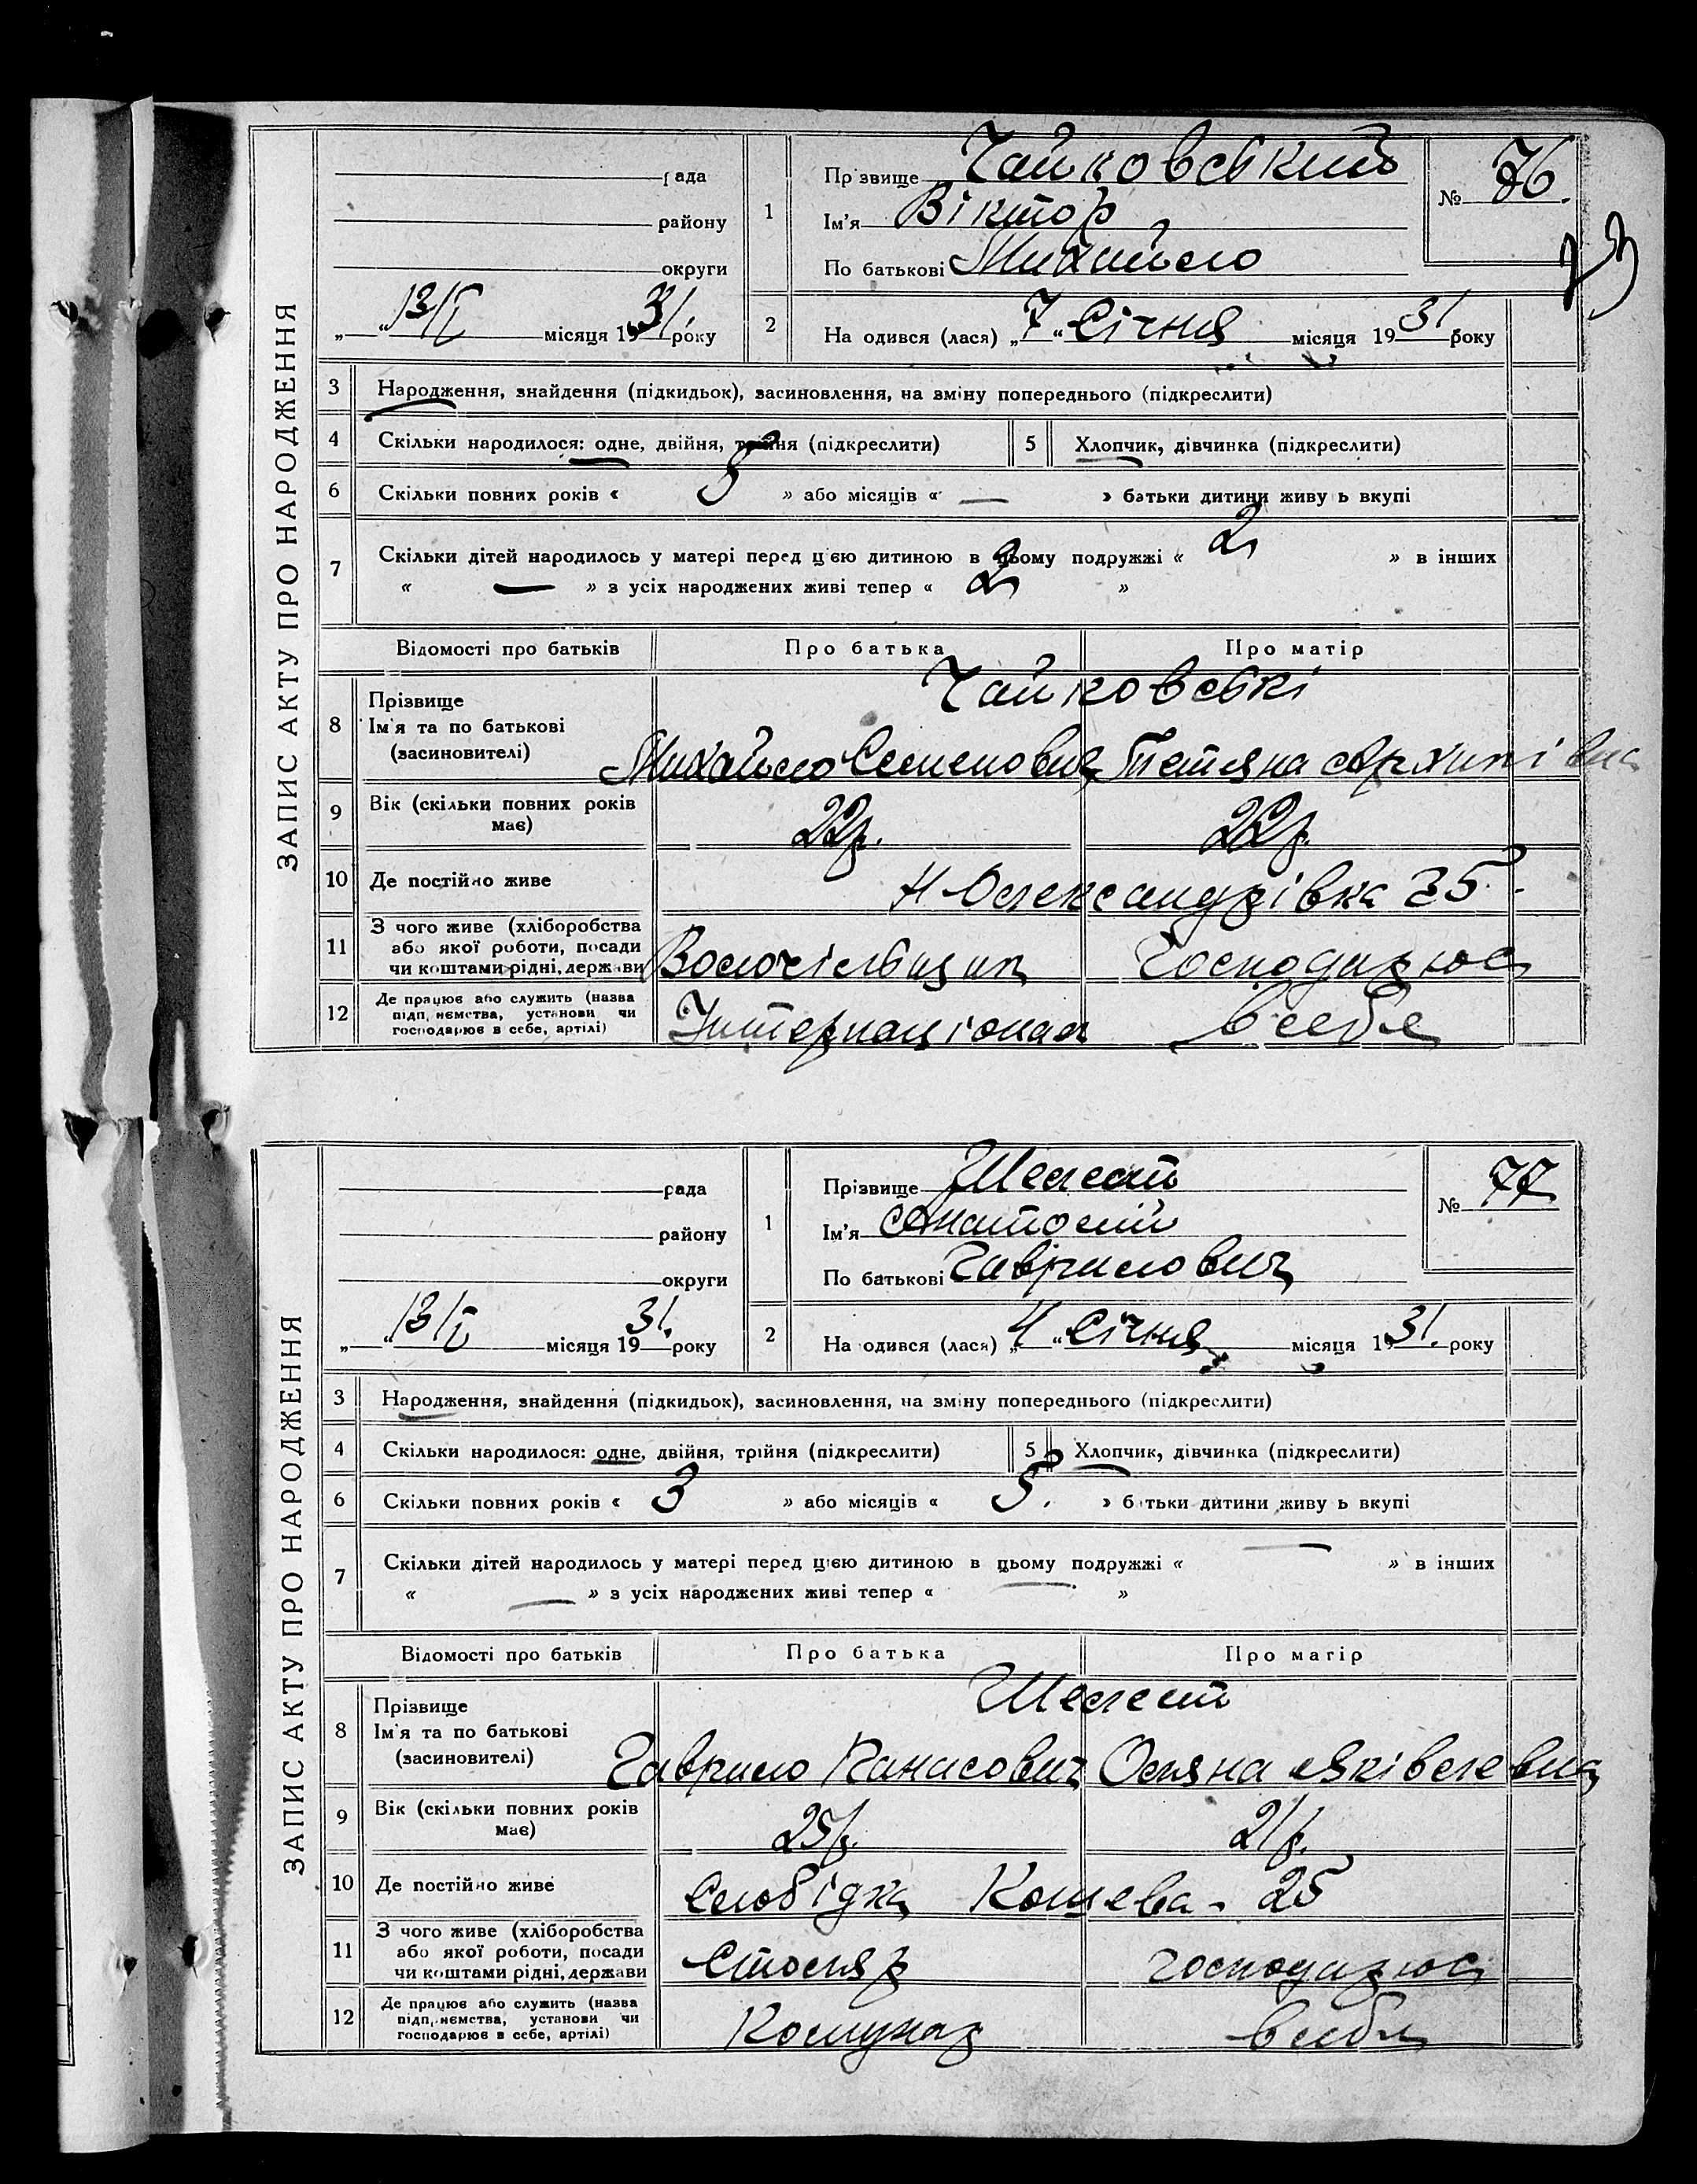 ЗАПИС АКТУ ПРО НАРОДЖЕННЯ
рада
району
округи
„ “ 13/I місяця 1931 року
1
Прізвище Чайковський
Ім'я Віктор
По батькові Михайло
№ 76.
23
2 На одився (лася) „7“ Січня місяця 1931 року
3 Народження, знайдення (підкидьок), засиновлення, на зміну попереднього (підкреслити)
4 Скільки народилося: одне, двійня, трійня (підкреслити) 5 Хлопчик, дівчинка (підкреслити)
6 Скільки повних років « 5 » або місяців « — » батьки дитини живу ь вкупі
7 Скільки дітей народилось у матері перед цією дитиною в цьому подружжі « 2 » в інших
« — » з усіх народжених живі тепер « 2 »
Відомості про батьків Про батька Про матір
8 Прізвище Чайковські
Ім'я та по батькові
(засиновителі) Михайло Семенович Тетяна Архипівна
9 Вік (скільки повних років має) 22р. 22р.
10 Де постійно живе Н Олександрівка 35.
11 З чого живе (хліборобства
або якої роботи, посади
чи коштами рідні, держави Господарює
12 Де працює або служить (назва
підп, иємства, установи чи
господарює в себе, артілі) Інтернаціонал в себе
ЗАПИС АКТУ ПРО НАРОДЖЕННЯ
рада
району
округи
„ “ 13/I місяця 1931. року
1
Прізвище Шелест
Ім'я Анатолій
По батькові Гаврилович
№ 77
2 На одився (лася) „4“ Січня місяця 1931. року
3 Народження, знайдення (підкидьок), засиновлення, на зміну попереднього (підкреслити)
4 Скільки народилося: одне, двійня, трійня (підкреслити) 5 Хлопчик, дівчинка (підкреслити)
6 Скільки повних років « 3 » або місяців « 5. » б тьки дитини живу ь вкупі
7 Скільки дітей народилось у матері перед цією дитиною в цьому подружжі « — » в інших
« — » з усіх народжених живі тепер « — »
Відомості про батьків Про батька Про матір
8 Прізвище Шелест
Ім'я та по батькові
(засиновителі) Гаврило Панасович Оляна
9 Вік (скільки повних років має) 25р. 21р.
10 Де постійно живе Слобідка Кошева - 25
11 З чого живе (хліборобства
або якої роботи, посади
чи коштами рідні, держави Столяр господарює
12 Де працює або служить (назва
підп, иємства, установи чи
господарює в себе, артілі) Комунар в себе